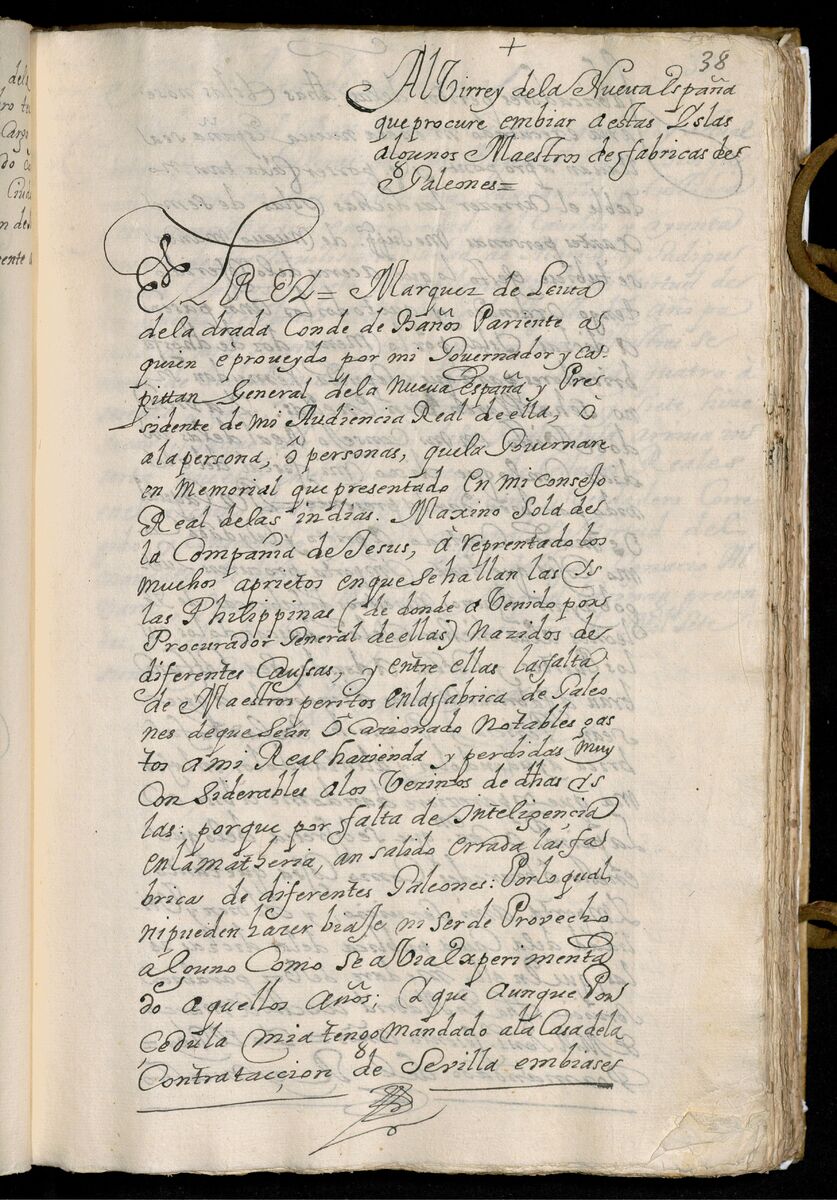 +
38
Al Virrey dela Nueva España
que procure embiar a estas Yslas
algunos Maestros desfabricas de
Galeones=
El REI= Marquez de Leiva
dela drada Conde de Baños Pariente a
quien é proveydo por mi Governador y Ca-
pittan General dela Nueva España y Pre
sidente de mi Audiencia Real de ella, ô
ala persona, ô personas, que la Guernare
en Memorial que presentado en mi consejo
Real delas indias. Maxino Sola de
la Compania de Jesus, â reprentado los
muchos aprietos en que se hallan las ys
las Philippinas (de donde a Venido por
Procurador General de ellas) Nazidos de
diferentes Caussas, y entre ellas la falta
de Maestros peritos en la fabrica de Galeo
nes de que sean ôCazionado Notables gas
tos a mi Real hazienda y perdidas muy
Considerables alos Vezinos de dhas ys
las: porque por falta de Inteligencia
en la matheria, an salido errada las fa
bricas de diferentes Galeones: Porlo qual
ni pueden hazer biaje ni ser de Provecho
alguno Como se a Via Experimenta
do aquellos años; Y que aunque Por
Cedula mia tengo mandado ala Casa dela
Contratacçion de Sevilla embiases